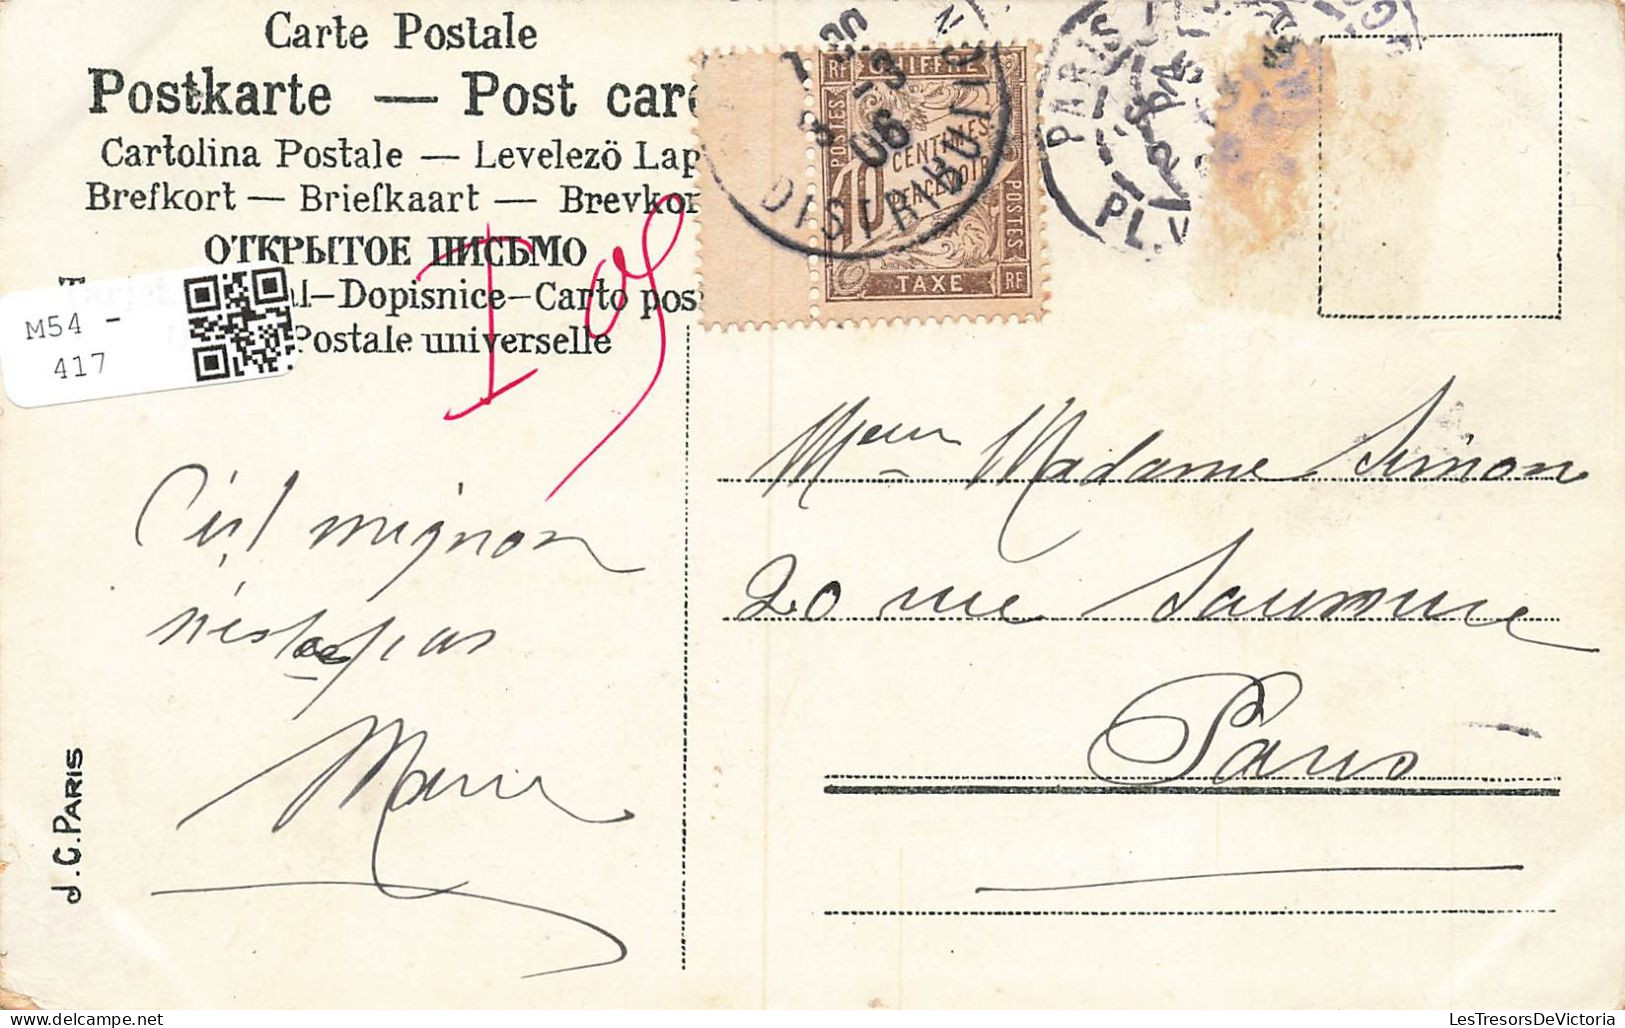 Carte Postale
Postkarte — Post car
Cartolina Postale — Levelezö Lap
Brefkort — Briefkaart — Brevkor
ОТКРЫТОЕ ПИСЬМО
l—Dopisnice—Carto pos
Postale universelle
M54 -
417
RF CHIFFRE
POSTES
10 CENTIMES
A PERCEVOIR
POSTES
TAXE RF
DISTRIBUTION
1 20
8 -3
06
PARIS
PL. V
C'est mignon
n'est ce pas
Marie
J.G. PARIS
Madame Simon
20 rue Saumure
Paris
LesTresorsDeVictoria